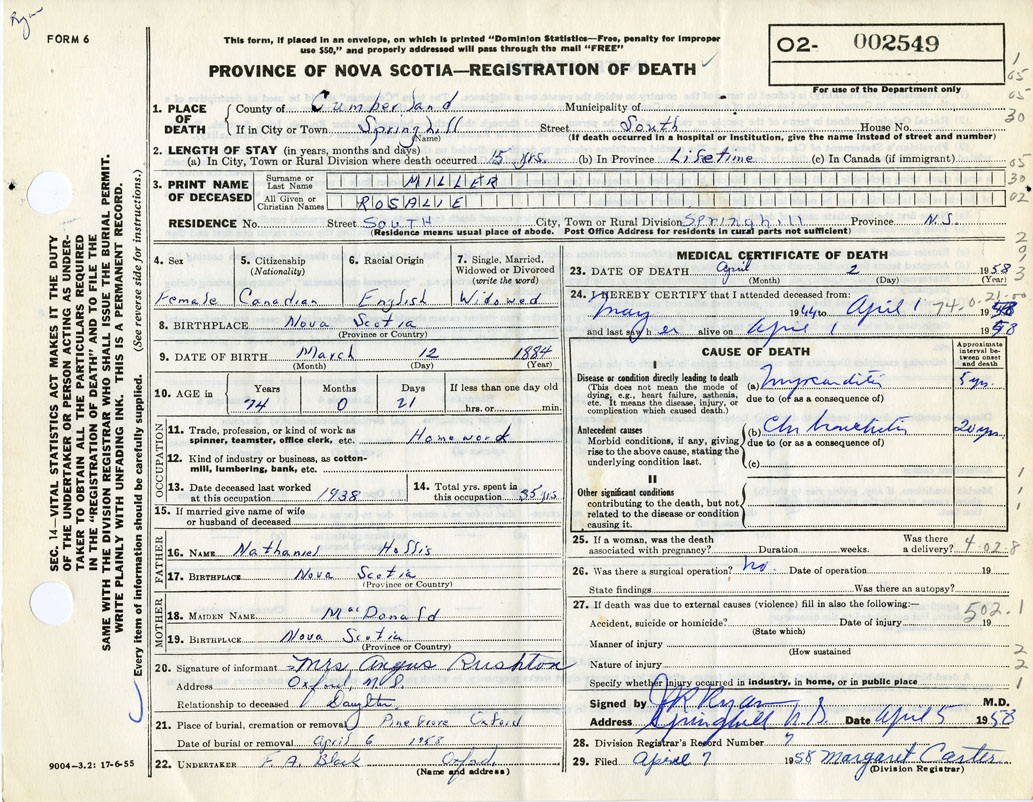 Ryan
FORM 6
This form, if placed in an envelope, on which is printed "Dominion Statistics—Free, penalty for improper
use $50," and properly addressed will pass through the mail "FREE"
02- 002549
For use of the Department only
PROVINCE OF NOVA SCOTIA—REGISTRATION OF DEATH
SEC. 14—VITAL STATISTICS ACT MAKES IT THE DUTY
OF THE UNDERTAKER OR PERSON ACTING AS UNDER-
TAKER TO OBTAIN ALL THE PARTICULARS REQUIRED
IN THE "REGISTRATION OF DEATH" AND TO FILE THE
SAME WITH THE DIVISION REGISTRAR WHO SHALL ISSUE THE BURIAL PERMIT.
WRITE PLAINLY WITH UNFADING INK. THIS IS A PERMANENT RECORD.
Every item of information should be carefully supplied. (See reverse side for instructions.)
1. PLACE OF DEATH County of Cumberland Municipality of
If in City or Town Springhill Street South House No.
(Name) (If death occurred in a hospital or institution, give the name instead of street and number)
2. LENGTH OF STAY (in years, months and days)
(a) In City, Town or Rural Division where death occurred 15 yrs. (b) In Province Lifetime (c) In Canada (if immigrant)
3. PRINT NAME OF DECEASED Surname or Last Name MILLER
All Given or Christian Names ROSALIE
RESIDENCE No. Street SOUTH City, Town or Rural Division Springhill Province N.S.
(Residence means usual place of abode. Post Office Address for residents in rural parts not sufficient)
4. Sex Female
5. Citizenship (Nationality) Canadian
6. Racial Origin English
7. Single, Married, Widowed or Divorced (write the word) Widowed
8. BIRTHPLACE Nova Scotia
(Province or Country)
9. DATE OF BIRTH March 12 1884
(Month) (Day) (Year)
10. AGE in Years 74 Months 0 Days 21 If less than one day old hrs. or min.
OCCUPATION
11. Trade, profession, or kind of work as spinner, teamster, office clerk, etc. Homework
12. Kind of industry or business, as cotton-mill, lumbering, bank, etc.
13. Date deceased last worked at this occupation 1938
14. Total yrs. spent in this occupation 35 yrs
15. If married give name of wife or husband of deceased
FATHER
16. NAME Nathaniel Hollis
17. BIRTHPLACE Nova Scotia
(Province or Country)
MOTHER
18. MAIDEN NAME MacDonald
19. BIRTHPLACE Nova Scotia
(Province or Country)
20. Signature of informant Mrs Angus Rushton
Address Oxford, N.S.
Relationship to deceased Daughter
21. Place of burial, cremation or removal Pine Grove Oxford
Date of burial or removal April 6 1958
22. UNDERTAKER F. A. Black Oxford
(Name and address)
9004—3.2: 17-6-55
MEDICAL CERTIFICATE OF DEATH
23. DATE OF DEATH April 2 1958
(Month) (Day) (Year)
24. I HEREBY CERTIFY that I attended deceased from:
May 1944 to April 1 1958
74-0-21
and last saw her alive on April 1 1958
CAUSE OF DEATH
Approximate interval between onset and death
I
Disease or condition directly leading to death
(This does not mean the mode of dying, e.g., heart failure, asthenia, etc. It means the disease, injury, or complication which caused death.)
(a) Myocarditis 5 yrs.
due to (or as a consequence of)
Antecedent causes
Morbid conditions, if any, giving rise to the above cause, stating the underlying condition last.
(b) Chr bronchitis 20 yrs
due to (or as a consequence of)
(c)
II
Other significant conditions
contributing to the death, but not related to the disease or condition causing it.
25. If a woman, was the death associated with pregnancy? Duration weeks. Was there a delivery?
4-02-8
26. Was there a surgical operation? No. Date of operation 19
State findings Was there an autopsy?
27. If death was due to external causes (violence) fill in also the following:—
502.1
Accident, suicide or homicide? Date of injury 19
(State which)
Manner of injury
(How sustained
Nature of injury
Specify whether injury occurred in industry, in home, or in public place
Signed by JR Ryan M.D.
Address Springhill N.S. Date April 5 1958
28. Division Registrar's Record Number 7
29. Filed April 7 1958 Margaret Carter
(Division Registrar)